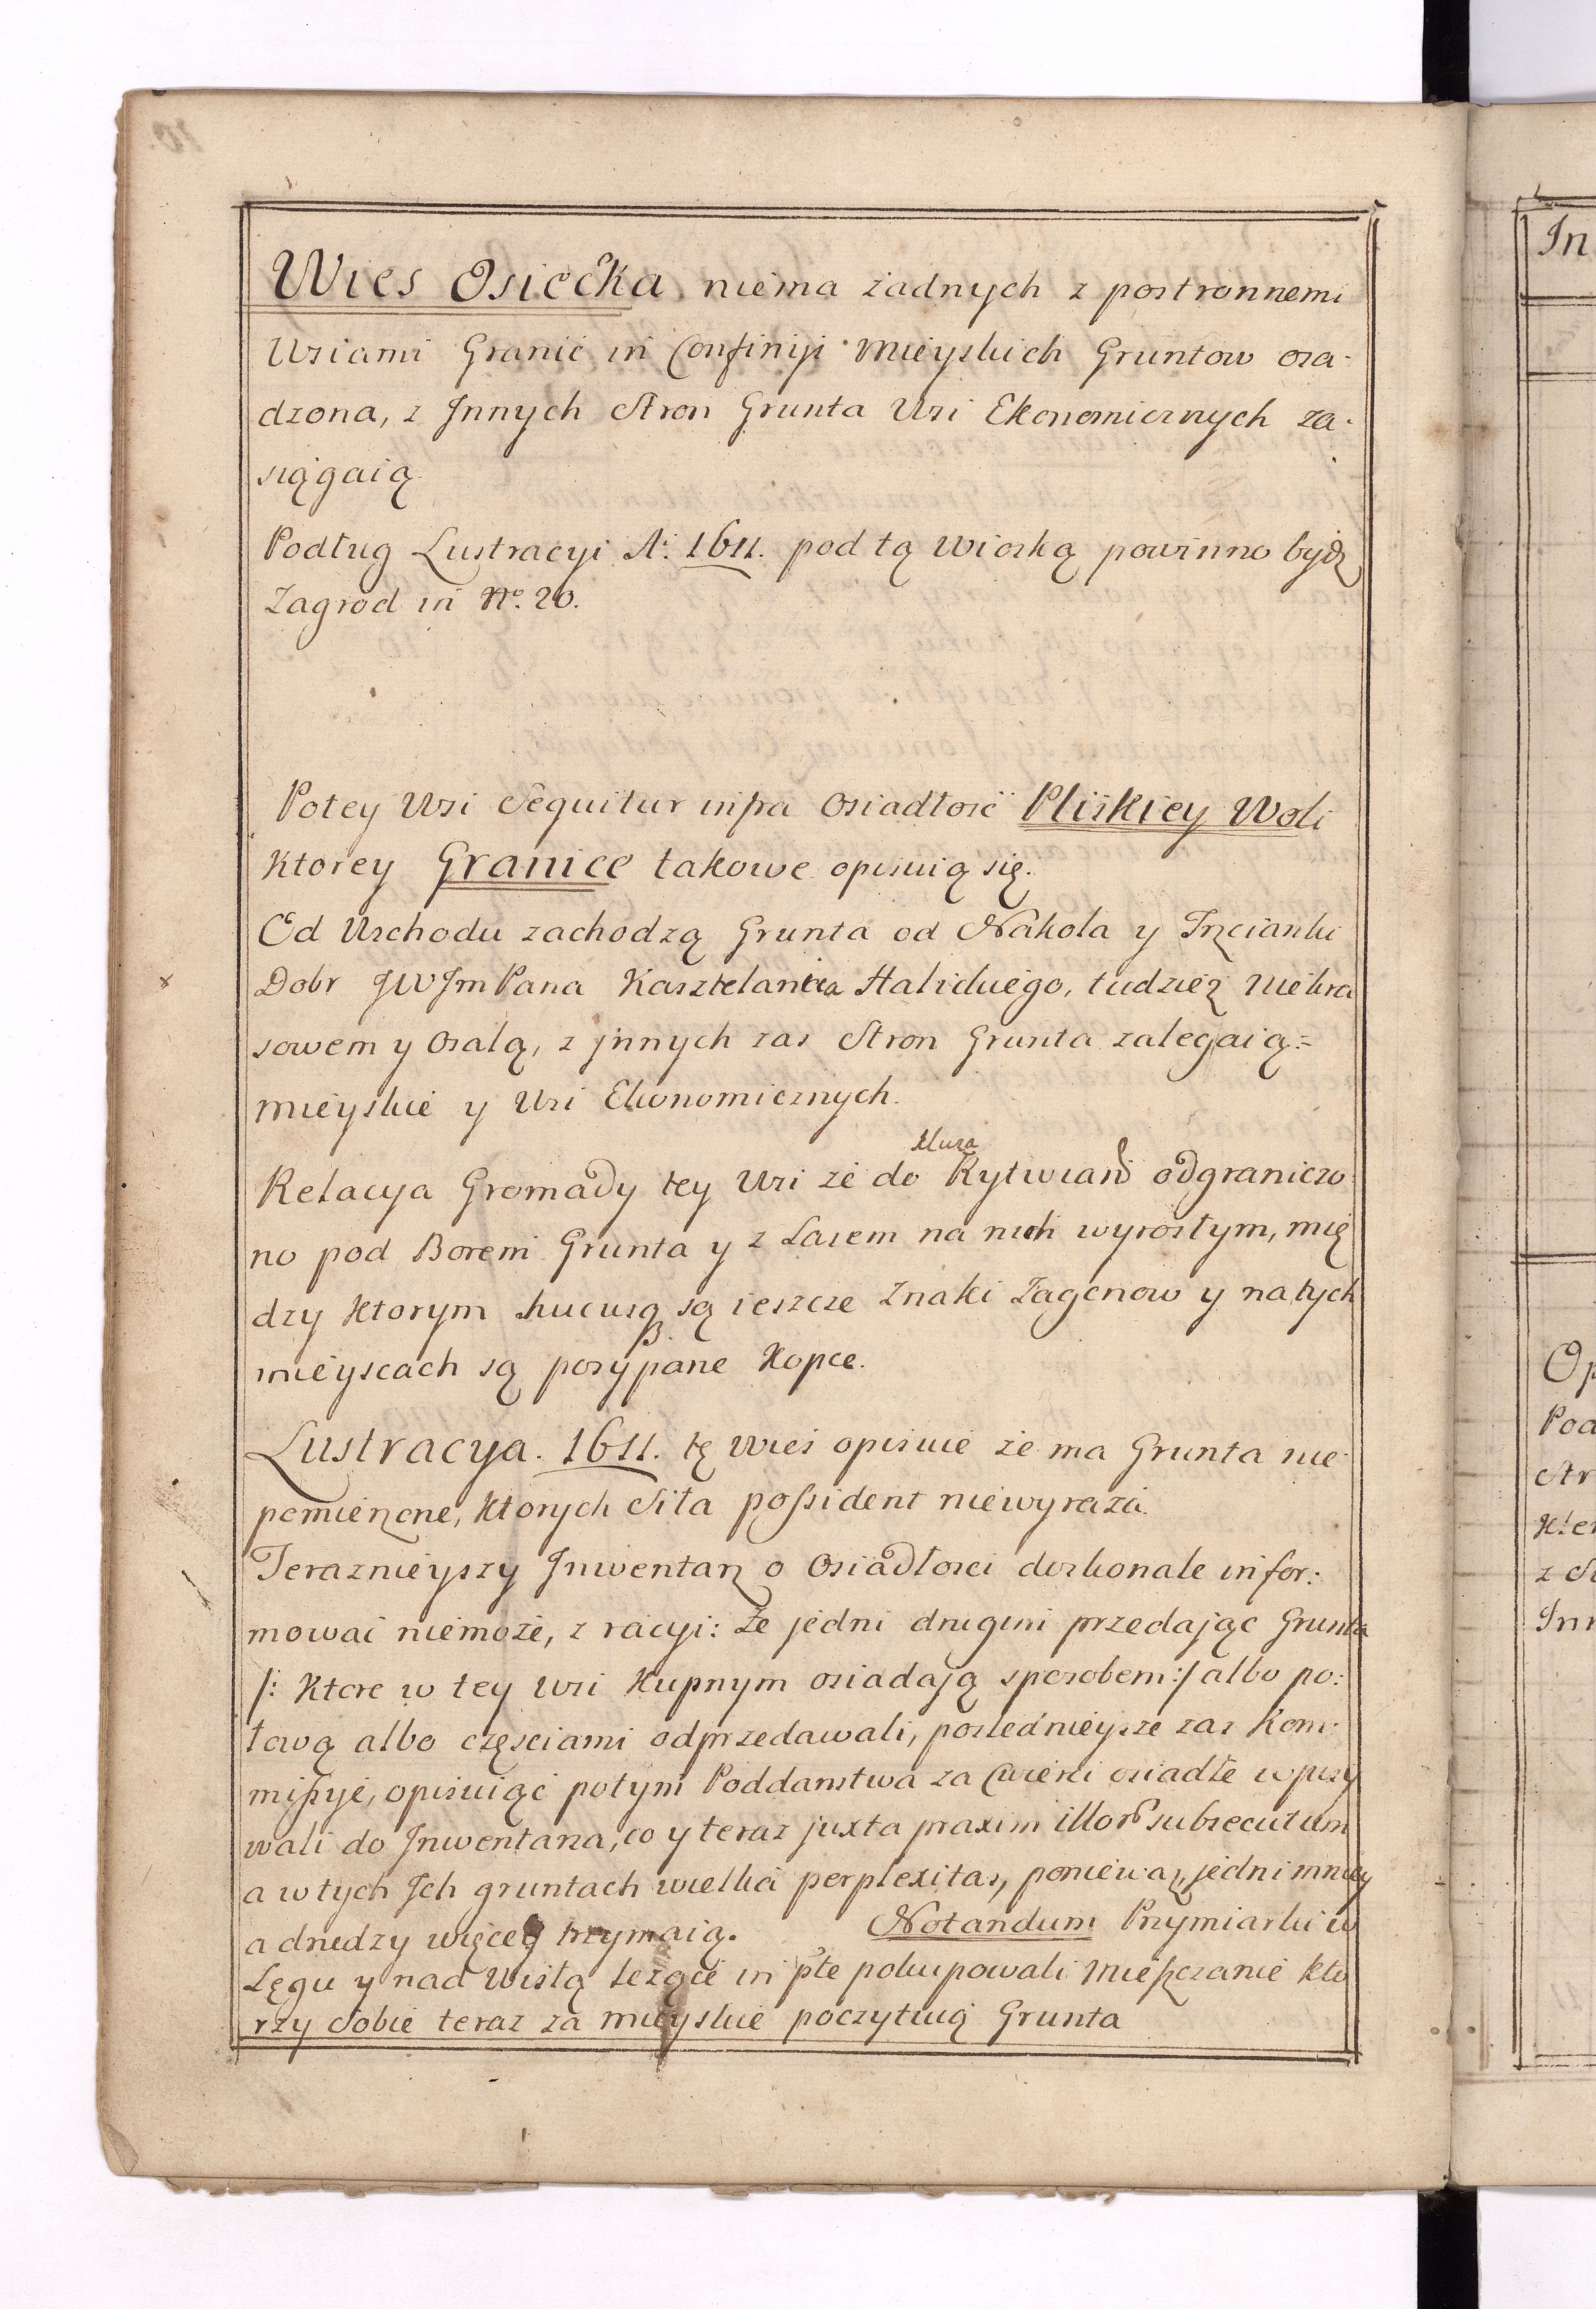 Wies Osiecka niema żadnych z postronnemi
Wsiami Granic in Confinyi Mieyskich Gruntow osa-
dzona, z Jnnych Stron Grunta Wsi Ekonomicznych za-
siągaią
Podług Lustracyi A: 1611. pod tą wioską powinno bydz
Zagrod in No. 20.
Potey Wsi Sequitur infra Osiadłosc Pliskiey Woli
Ktorey Granice takowe opisuią się.
Od Wschodu zachodzą Grunta od Nakola y Trzcianki
Dobr JWJmPana Kasztelanica Halickiego, tudzież Niekra
sowem y Osalą, z jnnych zas Stron Grunta zalegaią=
mieyskie y Wsi Ekonomicznych.
Klucza
Relacya Gromady tey Wsi że do Rytwian odgraniczo
no pod Borem Grunta y z Lasem na nich wyrosłym, mię
dzy Ktorym hucusq są ieszcze Znaki Zagonow y natych
mieyscach są posypane Kopce.
Lustracya. 1611. tę Wieś opisuie że ma Grunta nie-
pomierzone, Ktorych Siła possident niewyraża.
Teraznieyszy Jnwentarz o Osiadłosci doskonale infor:
mowac niemoże, z racyi: Że jedni drugim przedając Grunta
/: Ktore w tey Wsi Kupnym osiadają sposobem:/ albo po:
łową albo częsciami odprzedawali, poslednieysze zas Kom:
missye, opisuiąc potym Poddanstwa za Cwierci osiadłe wpisy
wali do Jnwentarza, co y teraz juxta praxim illor subsecutum
a w tych Jch gruntach wielka perplexitas, poniewaz jedni mniey
a drudzy więcey trzymaią. Notandum Przymiarki w
Łęgu y nad Wisłą leżące in pte pokupowali Miesczanie kto
rzy Sobie teraz za mieyskie poczytuią Grunta
In
Op
Pod
Str
Kto
Inn